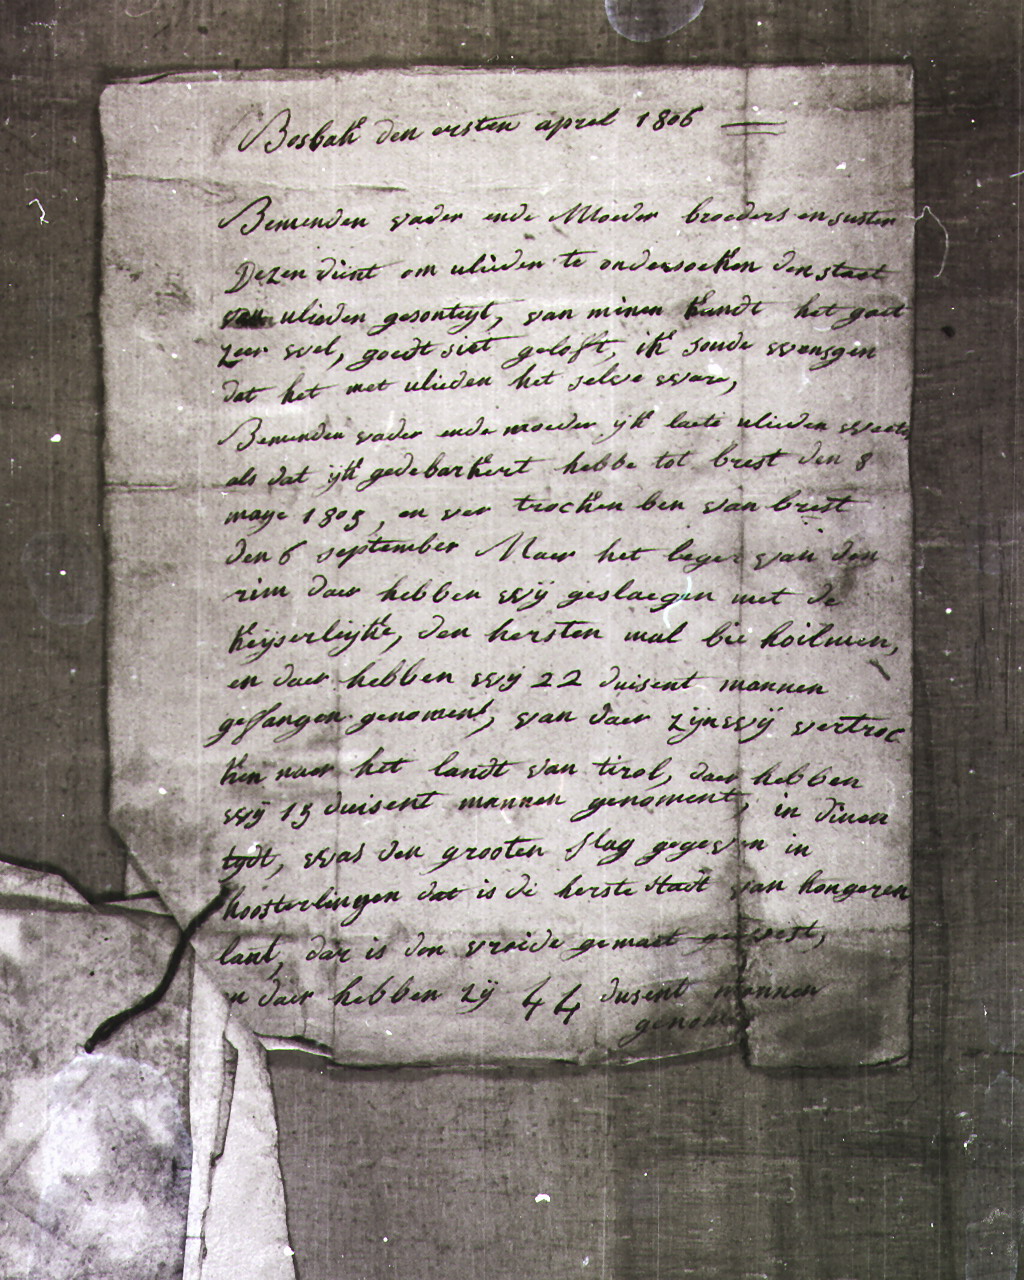 Bosbak den ersten aprel 1806
Bemenden vader ende Moeder broeders en suster
Dezen dient om ulieden te ondersocken den staet
van ulieden gesonteyt, van minen kandt het gaet
zeer wel, goedt siet gelooft, ik soude wensgen
dat het met ulieden het selve ware,
Bemenden vader ende moeder ijk laete ulieden weeten
als dat ijk gedebarkert hebbe tot brest den 8
maye 1805, en ver trocken ben van brest
den 6 september Naer het leger van den
rim daer hebben wij geslaegen met de
keyserleijke, den hersten mal bie hoilmen,
en daer hebben wij 22 duisent mannen
geffangen genoment, van daer zijn wij vertroc
ken naer het landt van tirol, daer hebben
wij 15 duisent mannen genoment, in dinen
tydt, was den grooten slag gegeven in
hoosterlingen dat is de herste stadt van hongeren
lant, dar is den vreide gemaet geweest,
en daer hebben zij 44 dusent mannen
genomen